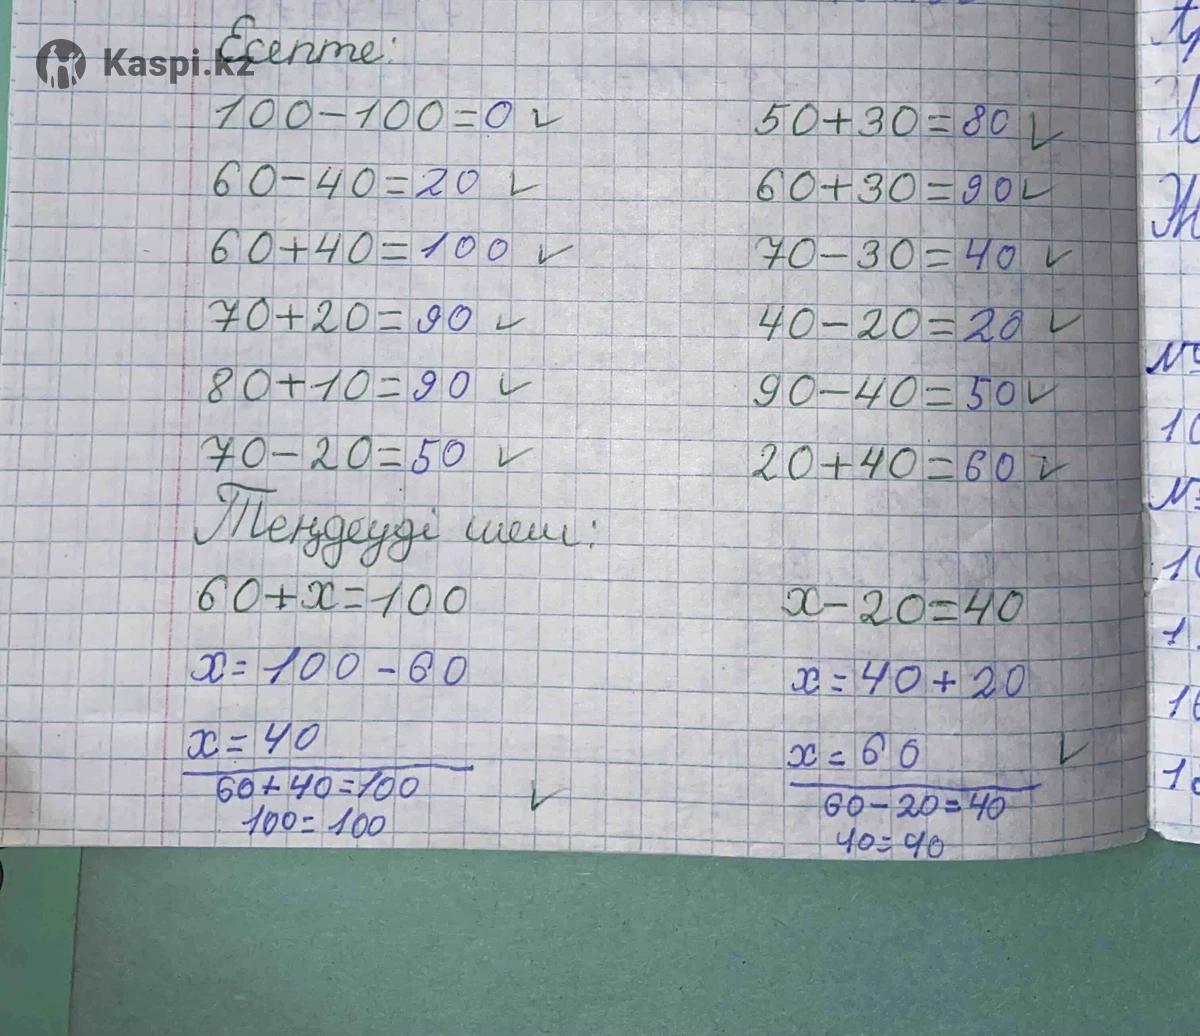 Есепте:
Kaspi.kz
100-100=0 ✓ 50+30=80 ✓
60-40=20 ✓ 60+30=90 ✓
60+40=100 ✓ 70-30=40 ✓
70+20=90 ✓ 40-20=20 ✓
80+10=90 ✓ 90-40=50 ✓
70-20=50 ✓ 20+40=60 ✓
Теңдеуді шеш:
60+x=100 x-20=40
x=100-60 x=40+20
x=40 x=60 ✓
60+40=100 ✓ 60-20=40
100=100 40=40